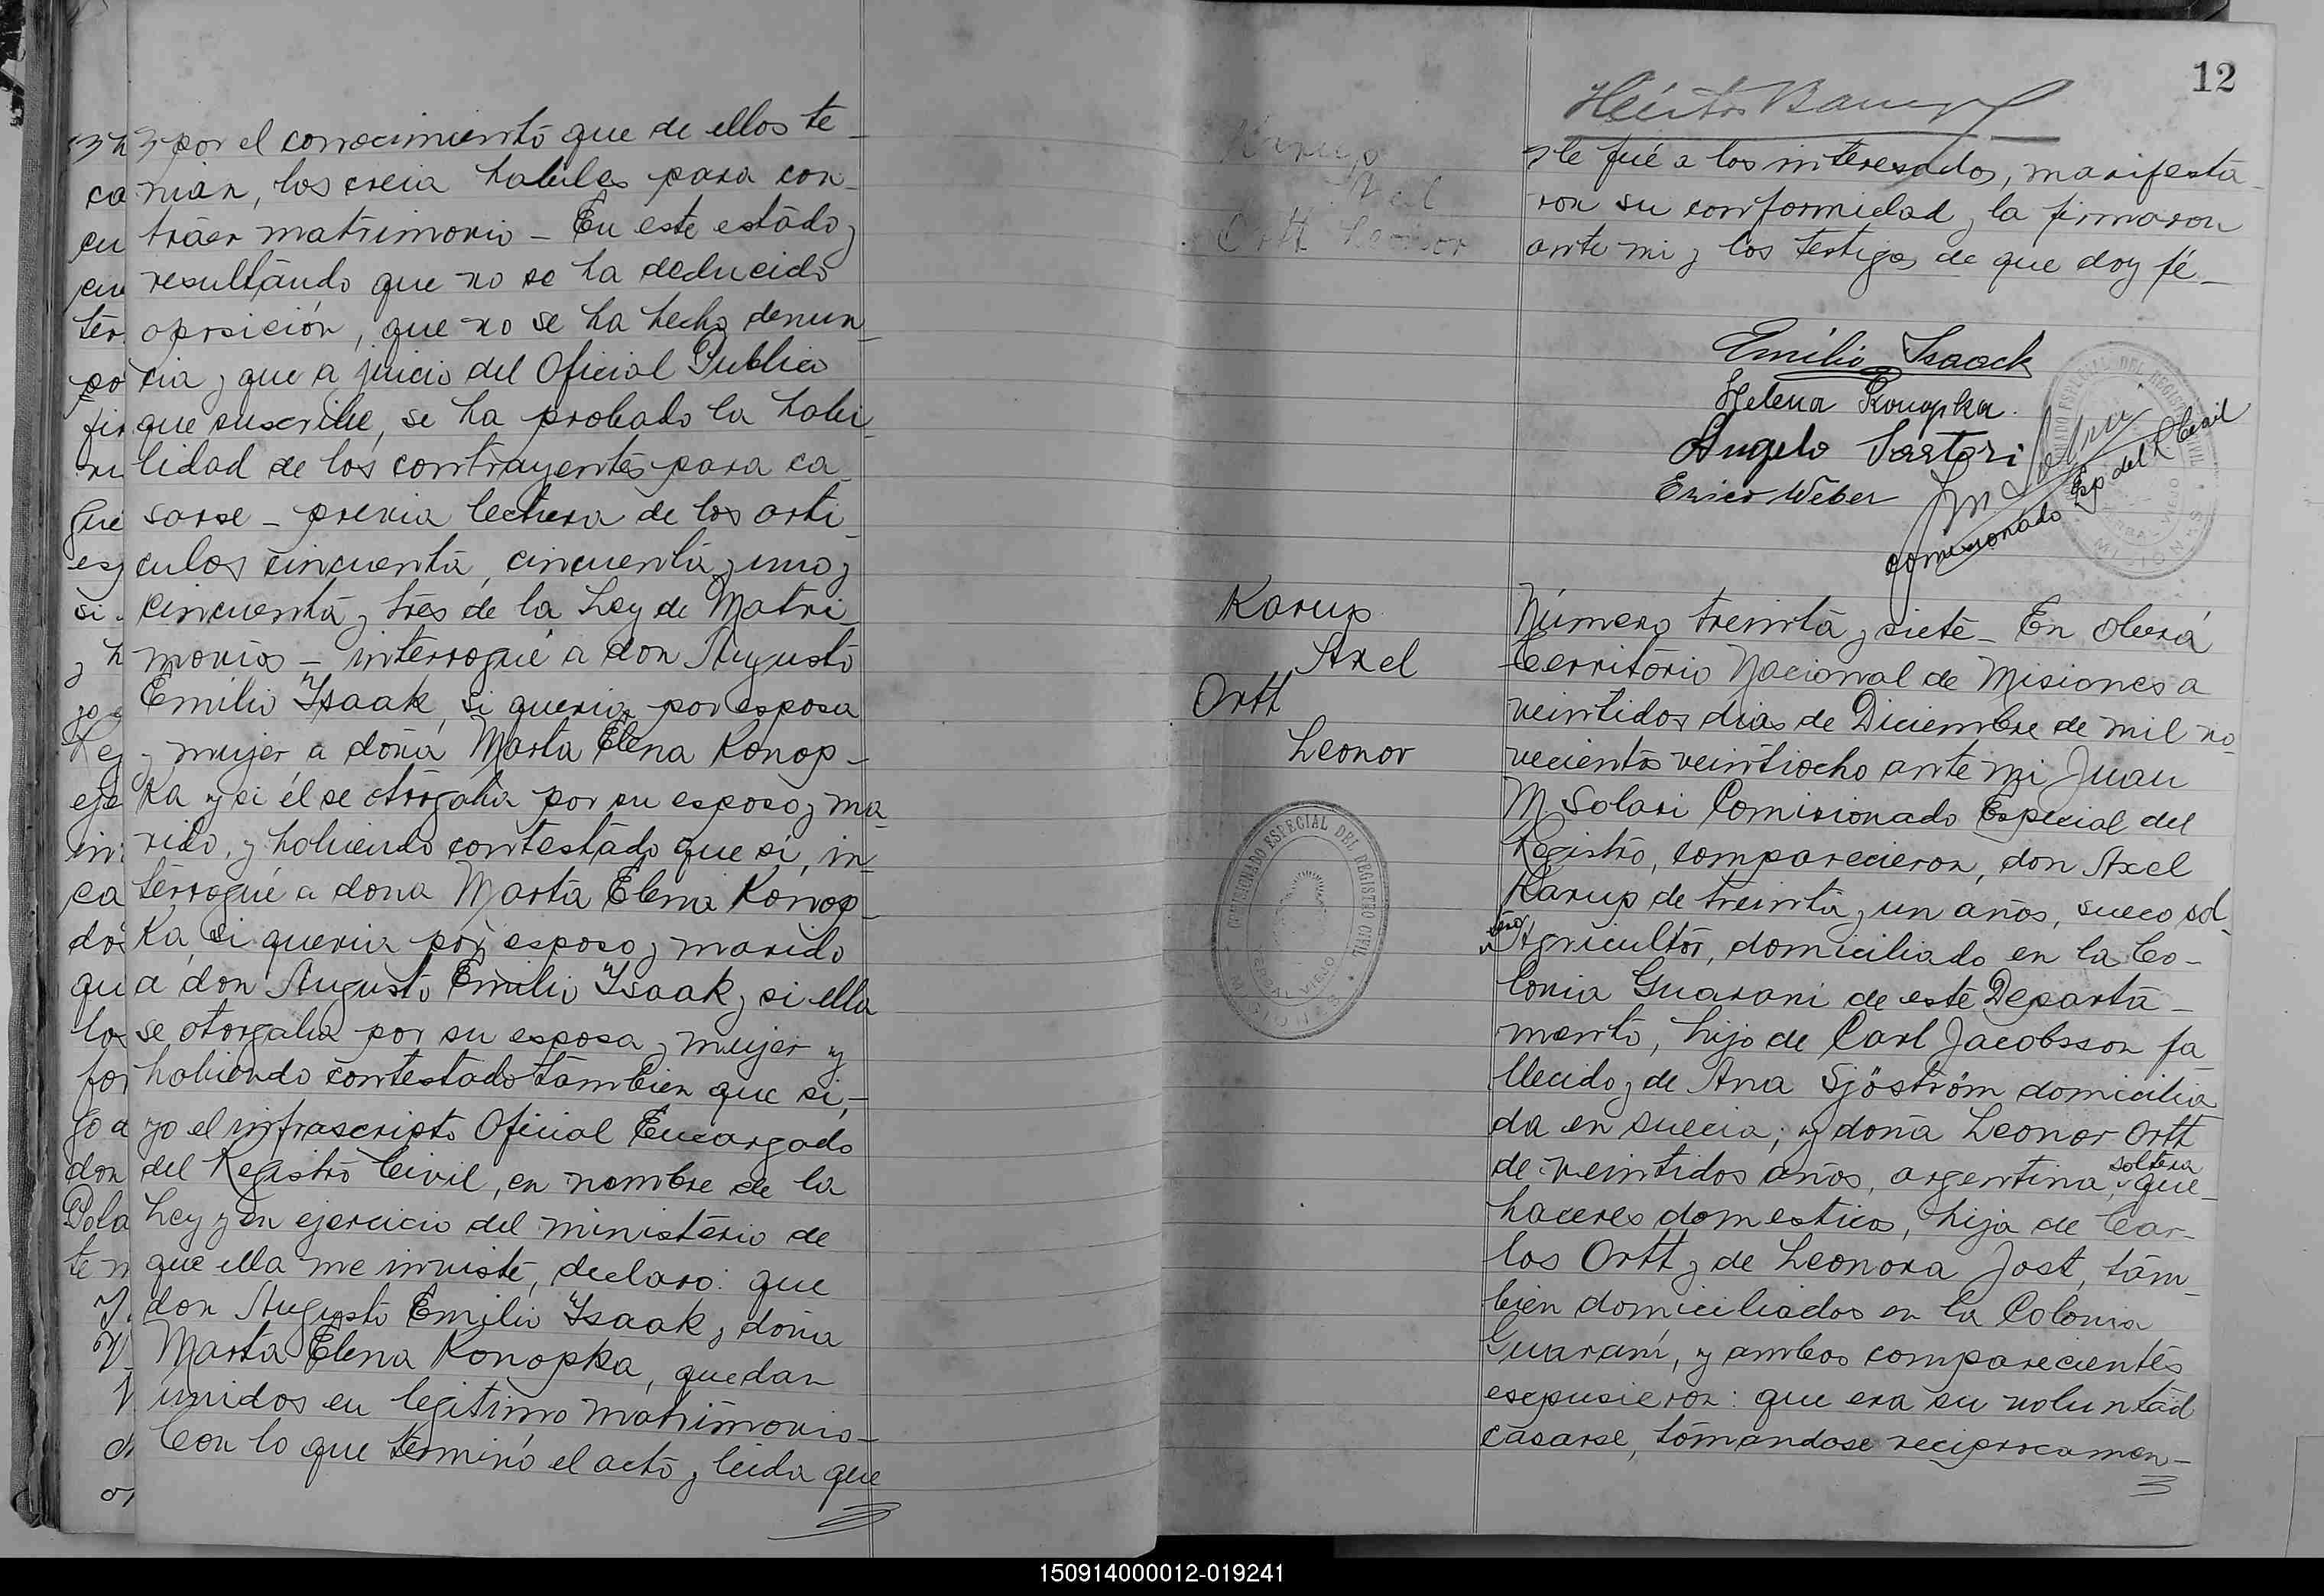 y por el conocimiento que de ellos te_
nian, los creia habiles para con_
traer matrimonio - En este estado y
resultando que no se ha deducido
oposición, que no se ha hecho denun_
cia y que a juicio del Oficial Publico
que suscribe, se ha probado la habi_
lidad de los contrayentes para ca_
sarse - previa lectura de los arti_
culos cincuenta, cincuenta y uno y
cincuenta y tres de la Ley de Matri_
monios - interrogué a don Augusto
Emilio Ysaak, si queria por esposa
y mujer a doña Marta Elena Konop_
ka y si él se otorgaba por su esposo y ma_
rido, y habiendo contestado que si, in_
terrogué a dona Marta Elena Konop_
ka, si queria por esposo y marido
a don Augusto Emilio Ysaak y si ella
se otorgaba por su esposa y mujer y
habiendo contestado tambien que si,-
yo el infrascripto Oficial Encargado
del Registro Civil, en nombre de la
Ley y en ejercicio del ministerio de
que ella me inviste, declaro: que
don Augusto Emilio Ysaak y doña
Marta Elena Konopka, quedan
unidos en legitimo matrimonio_
Con lo que terminó el acto y leida que
12
le fué a los interesados, manifesta_
ron su conformidad y la firmaron
ante mi y los testigos de que doy fé_
Emilio Isaack
Helena Konopka.
Angelo Sartori
Erico Weber
Comisionado Esp. del R. Civil
Karup
Axel
Ortt
Leonor
COMISIONADO ESPECIAL DEL REGISTRO CIVIL
YERBAL VIEJO
MISIONES
Número treinta y siete - En Oberá
Territorio Nacional de Misiones a
veintidos dias de Diciembre de mil no_
vecientos veintiocho ante mi Juan
M Solari Comisionado Especial del
Registro, comparecieron, don Axel
Karup de treinta y un años, sueco sol_
tero
Agricultor, domiciliado en la Co-
lonia Guarani de este Departa_
mento, hijo de Carl Jacobsson fa_
llecido y de Ana Sjöström domicilia_
da en suecia; y doña Leonor Ortt
de veintidos años, argentina, soltera que_
haceres domesticos, hija de Car_
los Ortt y de Leonora Jost, tam_
bien domiciliados en la Colonia
Guaraní, y ambos comparecientes
esepusieron: que era su voluntad
casarse, tomandose reciprocamen-
150914000012-019241